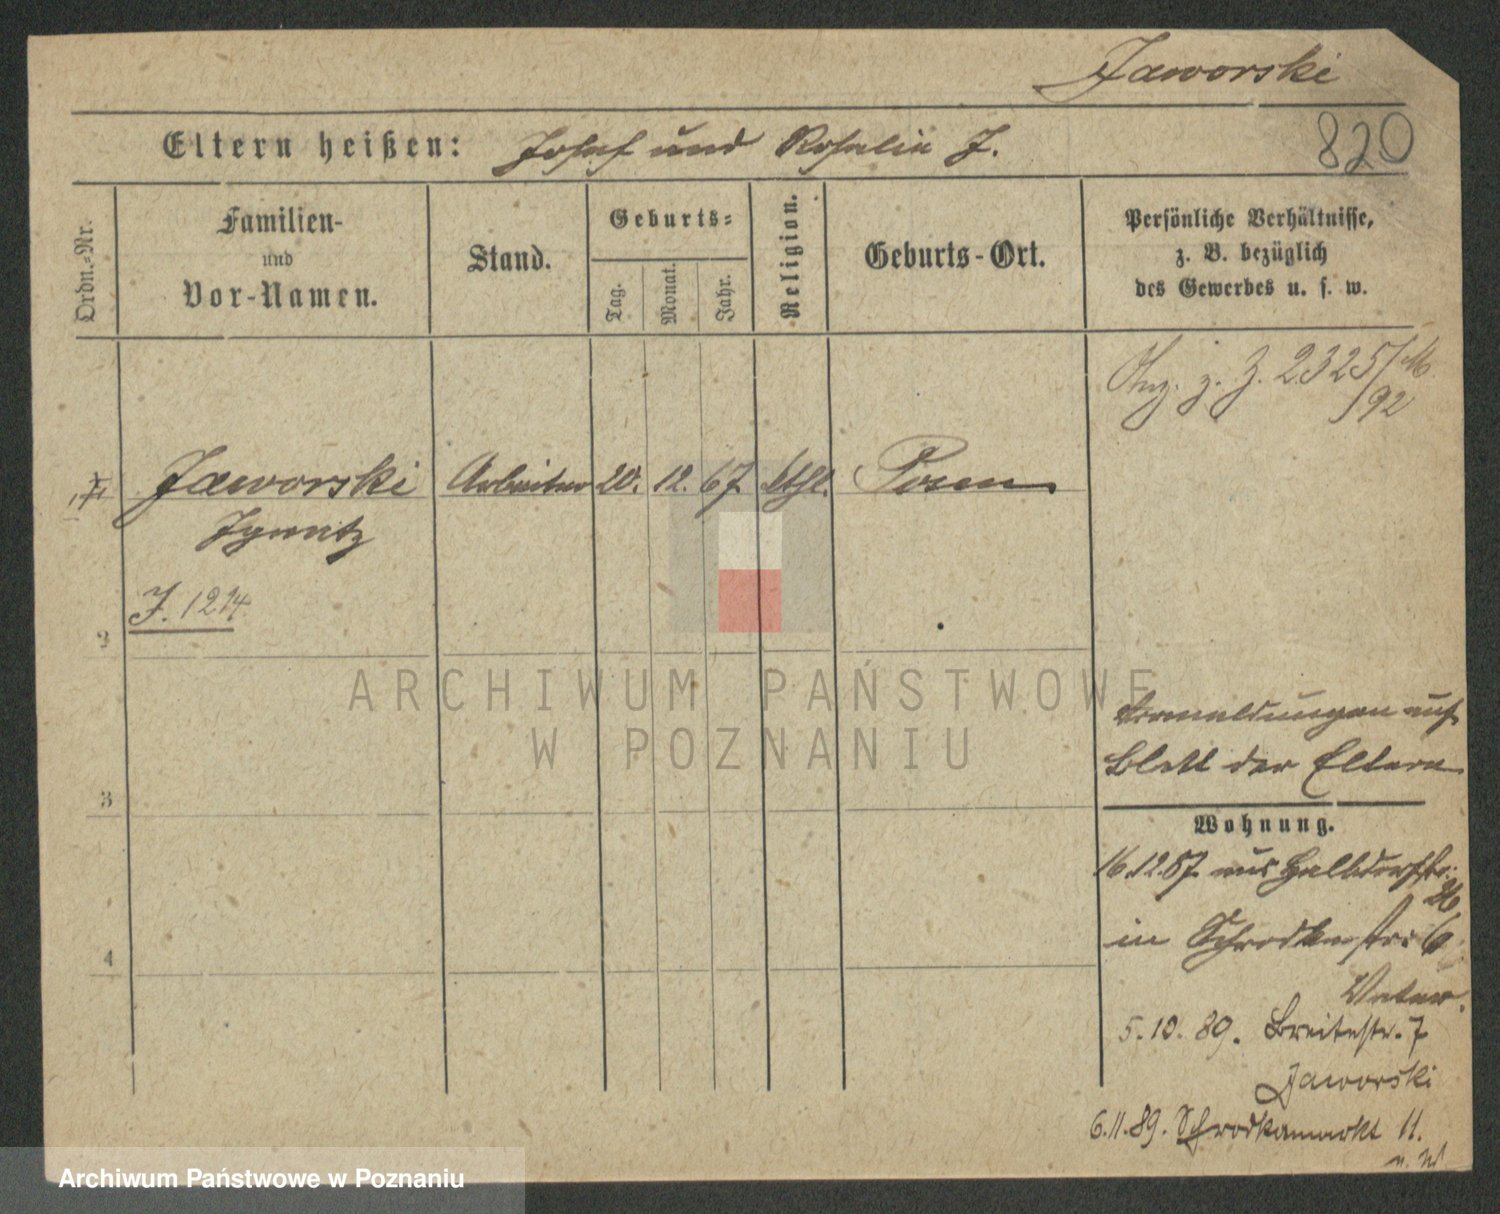 Jaworski
820
Eltern heißen: Josef und Rosalie J.
Ordn.-Nr.
Familien-
und
Vor-Namen.
Stand.
Geburts-
Tag.
Monat.
Jahr.
Religion.
Geburts-Ort.
Persönliche Verhältnisse,
z. B. bezüglich
des Gewerbes u. s. w.
z. Z. 2325/
92
Jaworski Arbeiter 20. 12. 67 kthl. Posen
Ignatz
J. 1214
2
Vermeldungen auf
Blatt der Eltern
3
Wohnung.
16.12.87 aus Halbdorfstr.
in Schrodkastr. 6
Vater.
4
5.10.89. Breitestr. 7
Jaworski
6.11.89. Schrodkamarkt 11.
ARCHIWUM PAŃSTWOWE
W POZNANIU
Archiwum Państwowe w Poznaniu